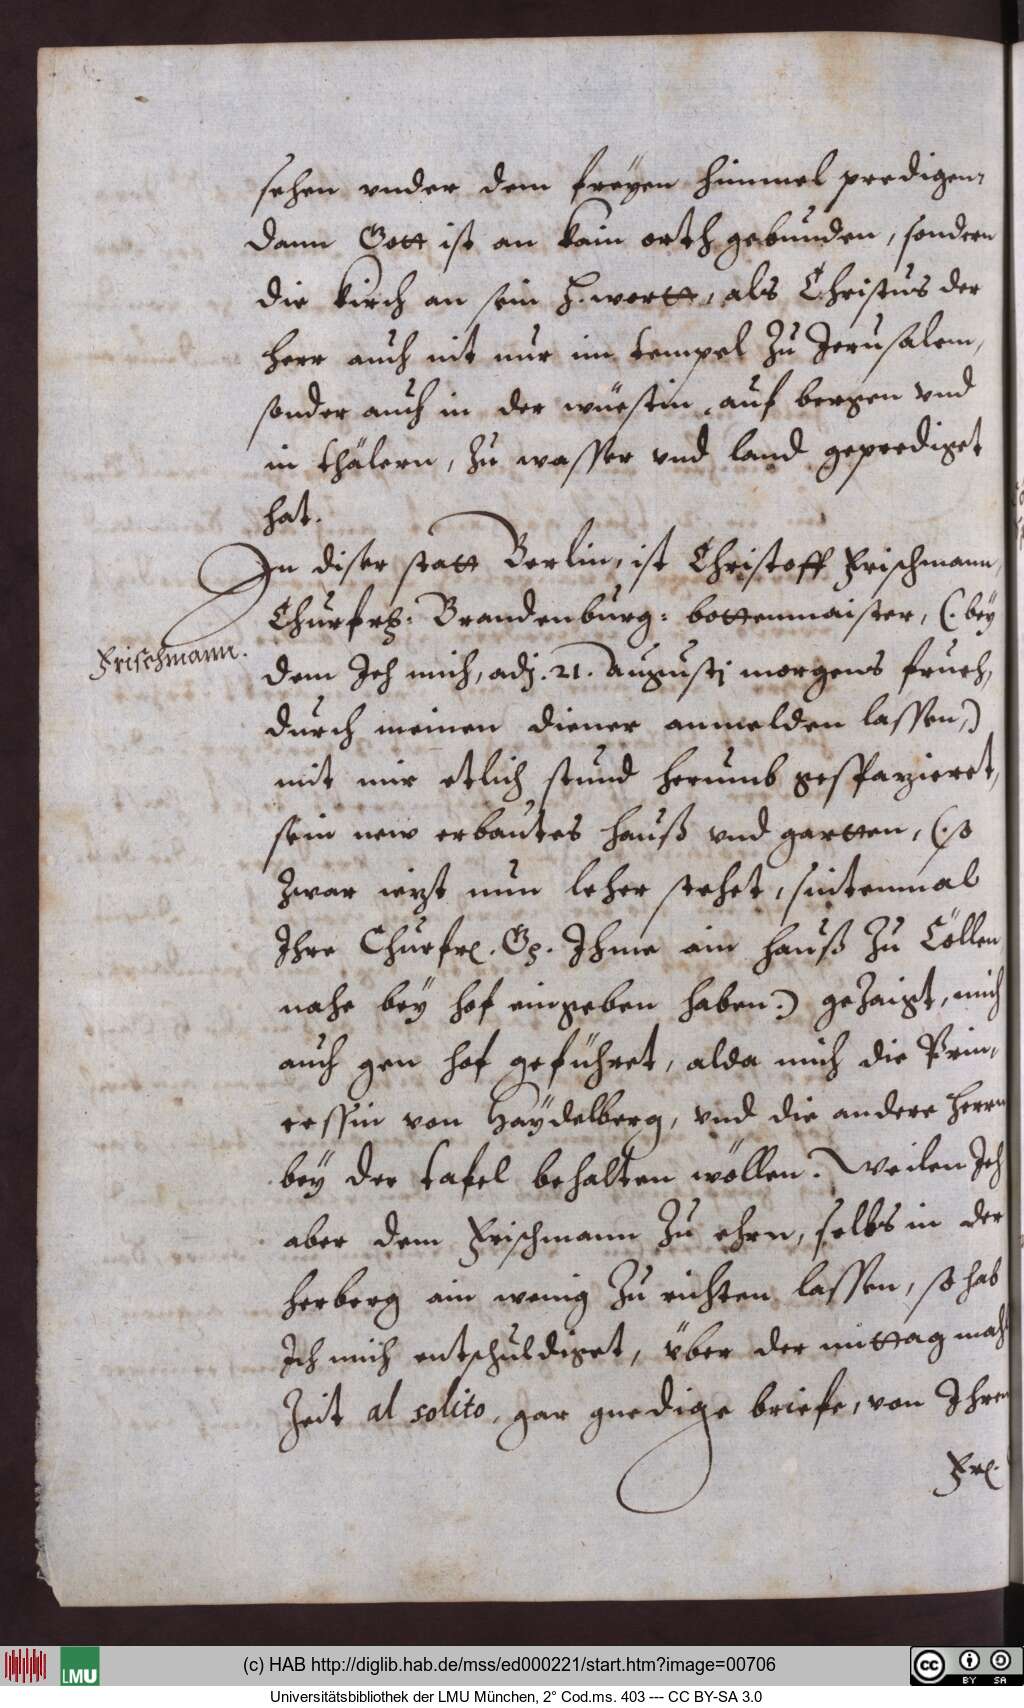 sehen vnder dem freyen himmel predigen,
dann Gott ist an kain orth gebunden, sondern
die kirch an sein H. wortt, als Christus der
herr auch nit nur im tempel Zu Jerusalem,
sonder auch in der wüestin, auf bergen vnd
in thälern, Zu wasser vnd land geprediget
hat.
In diser statt Berlin, ist Christoff Frischmann,
Churfrl: Brandenburg: bottenmaister, (: bey
Frischmann.
dem Ich mich, adj. 21. Augustj morgens frueh,
durch meinen diener anmelden lassen,)
mit mir etlich stund herumb gespaziert,
sein new erbautes hauß vnd gartten, (: so
Zwar iezt nun leher stehet, sintenmal
Ihre Churfrl. Gn. Ihme ain hauß Zu Cöllen
nahe bey hof eingeben haben:) geZaigt, mich
auch gen hof geführet, alda mich die Prin,
cessin von Haydelberg, vnd die andere herrn
bey der tafel behalten wöllen. Weilen Ich
aber dem Frischmann Zu ehrn, selbs in der
herberg ain wenig Zu richten lassen, so hab
Ich mich entschuldiget, über der mittag mahl
Zeit al solito, gar gnedige briefe, von Ihren
Frl.
(c) HAB http://diglib.hab.de/mss/ed000221/start.htm?image=00706
LMU
cc BY SA
Universitätsbibliothek der LMU München, 2° Cod.ms. 403 --- CC BY-SA 3.0